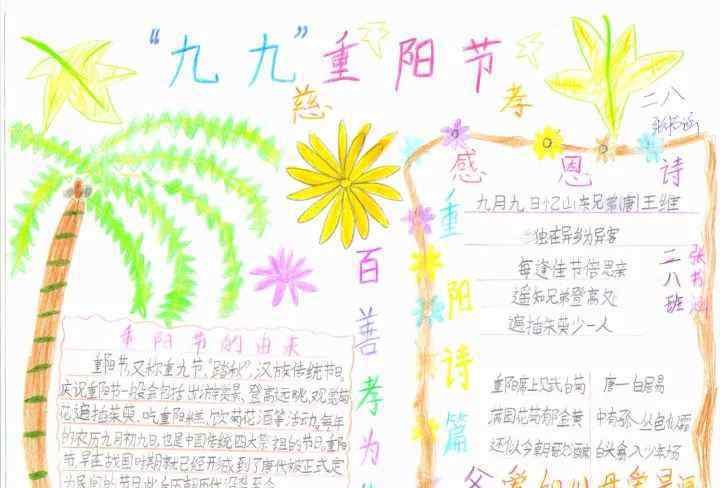 “九九”重阳节
慈
孝
二八
感恩诗
九月九日忆山东兄弟(唐)王维
独在异乡为异客
每逢佳节倍思亲
遥知兄弟登高处
遍插茱萸少一人
二八班
张书涵
重阳诗篇
重阳席上赋白菊
唐一白居易
满园花菊郁金黄
中有孤丛色似霜
还似今朝歌酒席
白头翁入少年场
百善孝为
重阳节的由来
重阳节,又称重九节,“踏秋”,汉族传统节日。
庆祝重阳节一般会包括出游赏景、登高远眺、观赏菊
花、遍插茱萸、吃重阳糕、饮菊花酒等活动,每年
的农历九月初九日,也是中国传统四大祭祖的节日,重阳
节,早在战国时期就已经形成,到了唐代被正式定
为民间的节日,此后历朝历代沿袭至今